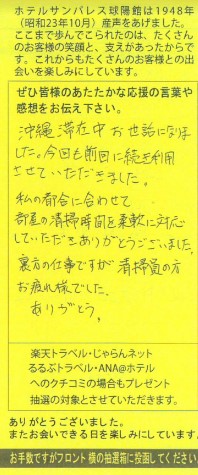 ホテルサンパレス球陽館は1948年
（昭和23年10月）産声をあげました。
ここまで歩んでこられたのは、たくさん
のお客様の笑顔と、支えがあったからで
す。これからもたくさんのお客様との出
会いを楽しみにしています。
ぜひ皆様のあたたかな応援の言葉や
感想をお伝え下さい。
沖縄滞在中お世話になりま
した。今回も前回に続き利用
させていただきました。
私の都合に合わせて
部屋の清掃時間を柔軟に対応
していただきありがとうございました。
裏方の仕事ですが清掃員の方
お疲れ様でした。
ありがとう。
楽天トラベル・じゃらんネット
るるぶトラベル・ANA@ホテル
へのクチコミの場合もプレゼント
抽選の対象とさせていただきます。
ありがとうございました。
またお会いできる日を楽しみにしています
お手数ですがフロント横の抽選箱に投函してください